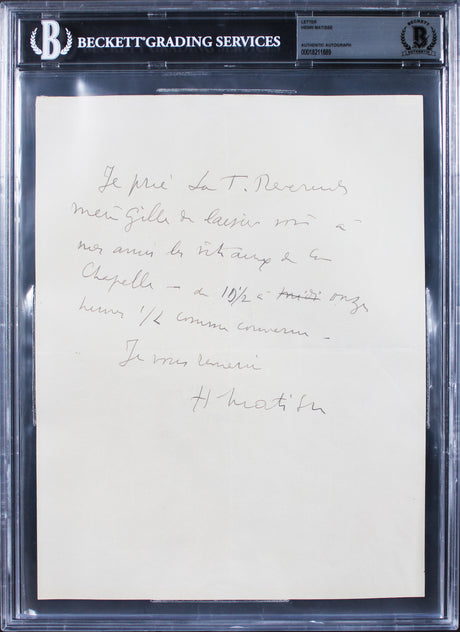 BECKETT GRADING SERVICES
LETTER
HENRI MATISSE
AUTHENTIC AUTOGRAPH
00016211689
BECKETT
Je prie La T. Reverende
mère Gille de laisser voir à
mes amis les vitraux de la
Chapelle — de 10 1/2 à midi onze
heures 1/2 comme convenu —
Je vous remercie
H Matisse